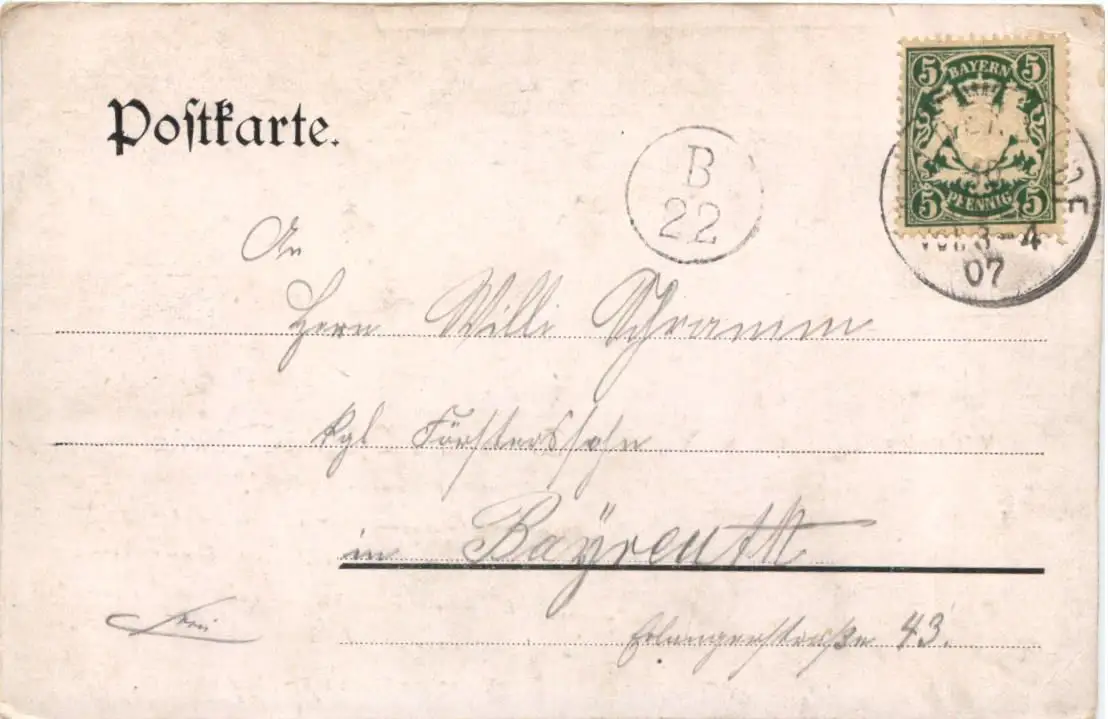 Postkarte.
B
22
5 BAYERN 5
5 PFENNIG 5
3-4
07
An
Herrn Willi Schramm
kgl Försterssohn
in Bayreuth
frei
Erlangerstraße 43.